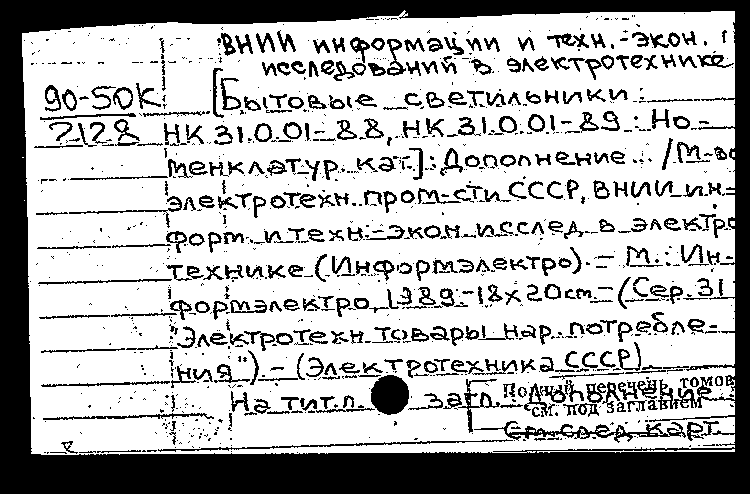 ВНИИ информации и техн.-экон.
исследований в электротехнике
90-50К [Бытовые светильники:
2128 НК 31.0.01-88, НК 31.0.01-89: Но-
менклатур. кат.]: Дополнение... /М-во
электротехн. пром-сти СССР, ВНИИ ин-
форм. и техн.-экон. исслед. в электро
технике (Информэлектро). – М.: Ин-
формэлектро, 1989 -18х20cm – (Сер. 31
"Электротехн. товары нар. потребле-
ния") – (Электротехника СССР)
На тит. л. загл.: Дополнение
Полный перечень томов
см. под заглавием
См. след. карт.